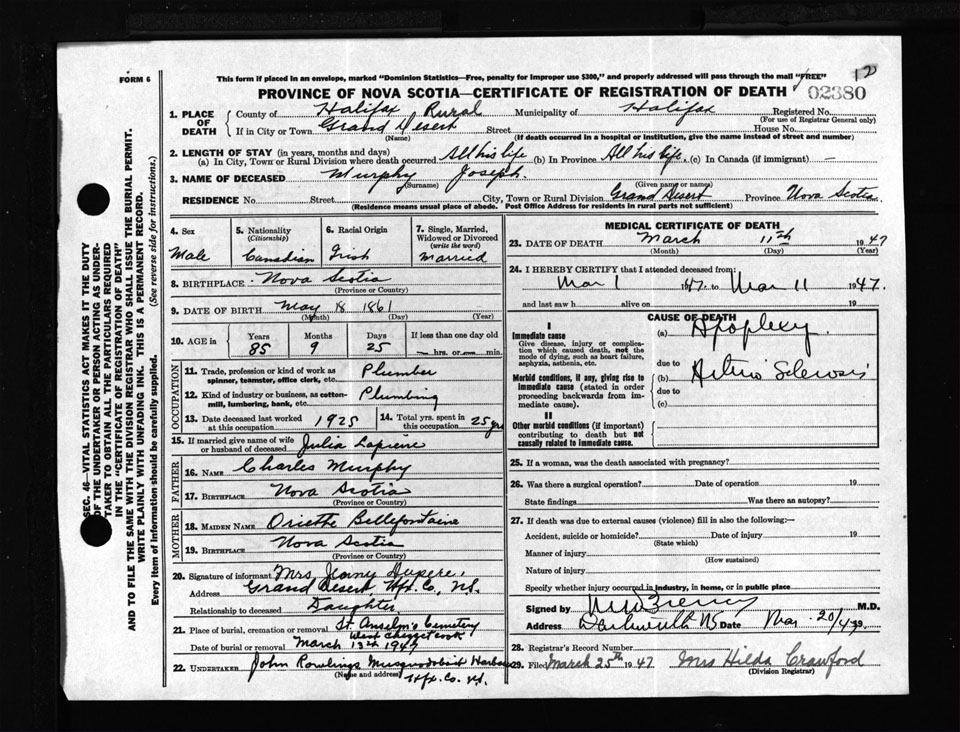 FORM 6
This form if placed in an envelope, marked "Dominion Statistics—Free, penalty for improper use $300," and properly addressed will pass through the mail "FREE"
12
PROVINCE OF NOVA SCOTIA—CERTIFICATE OF REGISTRATION OF DEATH 02380
1. PLACE OF DEATH County of Halifax Rural Municipality of Halifax Registered No.
(For use of Registrar General only)
If in City or Town Grand Desert Street House No.
(Name) (If death occurred in a hospital or institution, give the name instead of street and number)
2. LENGTH OF STAY (in years, months and days)
(a) In City, Town or Rural Division where death occurred All his life (b) In Province All his life. (c) In Canada (if immigrant) —
3. NAME OF DECEASED Murphy Joseph.
(Surname) (Given name or names)
RESIDENCE No. Street City, Town or Rural Division Grand Desert Province Nova Scotia
(Residence means usual place of abode. Post Office Address for residents in rural parts not sufficient)
4. Sex 5. Nationality (Citizenship) 6. Racial Origin 7. Single, Married, Widowed or Divorced (write the word)
Male Canadian Irish Married
8. BIRTHPLACE Nova Scotia
(Province or Country)
9. DATE OF BIRTH May 18 1861
(Month) (Day) (Year)
10. AGE in Years Months Days If less than one day old
85 9 25 — hrs. or — min.
OCCUPATION
11. Trade, profession or kind of work as spinner, teamster, office clerk, etc. Plumber
12. Kind of industry or business, as cotton-mill, lumbering, bank, etc. Plumbing
13. Date deceased last worked at this occupation 1925 14. Total yrs. spent in this occupation 25 yrs
15. If married give name of wife or husband of deceased Julia
FATHER
16. NAME Charles Murphy
17. BIRTHPLACE Nova Scotia
(Province or Country)
MOTHER
18. MAIDEN NAME Bellefontaine
19. BIRTHPLACE Nova Scotia
(Province or Country)
20. Signature of informant Mrs Jenny Dupere.
Address Grand Desert, Hfx. Co., N.S.
Relationship to deceased Daughter
21. Place of burial, cremation or removal St. Anselm's Cemetery
West Chezzetcook
Date of burial or removal March 13th 1947
22. UNDERTAKER John Rowlings Musquodoboit Harbour
(Name and address) Hfx. Co. N.S.
MEDICAL CERTIFICATE OF DEATH
23. DATE OF DEATH March 11th 1947
(Month) (Day) (Year)
24. I HEREBY CERTIFY that I attended deceased from:
Mar 1 1947 to Mar 11 1947.
and last saw h alive on 19
CAUSE OF DEATH
I
Immediate cause (a) Apoplexy
Give disease, injury or complication which caused death, not the mode of dying, such as heart failure, asphyxia, asthenia, etc.
due to
Morbid conditions, if any, giving rise to immediate cause (stated in order proceeding backwards from immediate cause). (b) Arterio Sclerosis
due to
(c)
II
Other morbid conditions (if important) contributing to death but not causally related to immediate cause.
25. If a woman, was the death associated with pregnancy?
26. Was there a surgical operation? Date of operation 19
State findings Was there an autopsy?
27. If death was due to external causes (violence) fill in also the following:—
Accident, suicide or homicide? Date of injury 19
(State which)
Manner of injury
(How sustained)
Nature of injury
Specify whether injury occurred in industry, in home, or in public place
Signed by M.D.
Address Dartmouth NS Date Mar 20/47 19
28. Registrar's Record Number
29. Filed March 25th 1947 Mrs Hilda Crawford
(Division Registrar)
SEC. 46—VITAL STATISTICS ACT MAKES IT THE DUTY
OF THE UNDERTAKER OR PERSON ACTING AS UNDER-
TAKER TO OBTAIN ALL THE PARTICULARS REQUIRED
IN THE "CERTIFICATE OF REGISTRATION OF DEATH"
AND TO FILE THE SAME WITH THE DIVISION REGISTRAR WHO SHALL ISSUE THE BURIAL PERMIT.
WRITE PLAINLY WITH UNFADING INK. THIS IS A PERMANENT RECORD.
Every item of information should be carefully supplied. (See reverse side for instructions.)